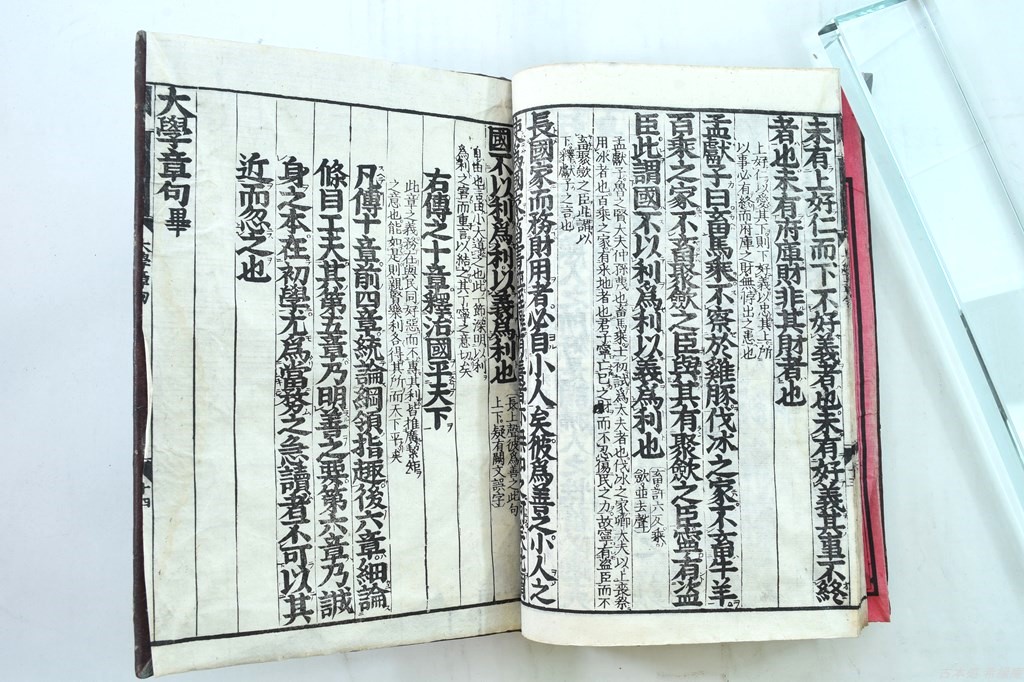 未有上好仁而下不好義者也未有好義其事不終
者也未有府庫財非其財者也
上好仁以愛其下則下好義以忠其上所
以事必有終而府庫之財無悖出之患也
孟獻子曰畜馬乘不察於雞豚伐冰之家不畜牛羊
百乘之家不畜聚斂之臣與其有聚斂之臣寧有盜
臣此謂國不以利爲利以義爲利也
畜許六反乘
斂並去聲
孟獻子魯之賢大夫仲孫蔑也畜馬乘士初試爲大夫者也伐冰之家卿大夫以上喪祭
用冰者也百乘之家有采地者也君子寧亡己之財而不忍傷民之力故寧有盜臣而不
畜聚斂之臣此謂以
下釋獻子之言也
長國家而務財用者必自小人矣彼爲善之小人之
國不以利爲利以義爲利也
長上聲彼爲善之此句
上下疑有闕文誤字
自由也言由小人導之也此一節深明以利
爲利之害而重言以結之其丁寧之意切矣
右傳之十章釋治國平天下
此章之義務在與民同好惡而不專其利皆推廣絜矩
之意也能如是則親賢樂利各得其所而天下平矣
凡傳十章前四章統論綱領指趣後六章細論
條目工夫其第五章乃明善之要第六章乃誠
身之本在初學尤爲當務之急讀者不可以其
近而忽之也
大學章句畢